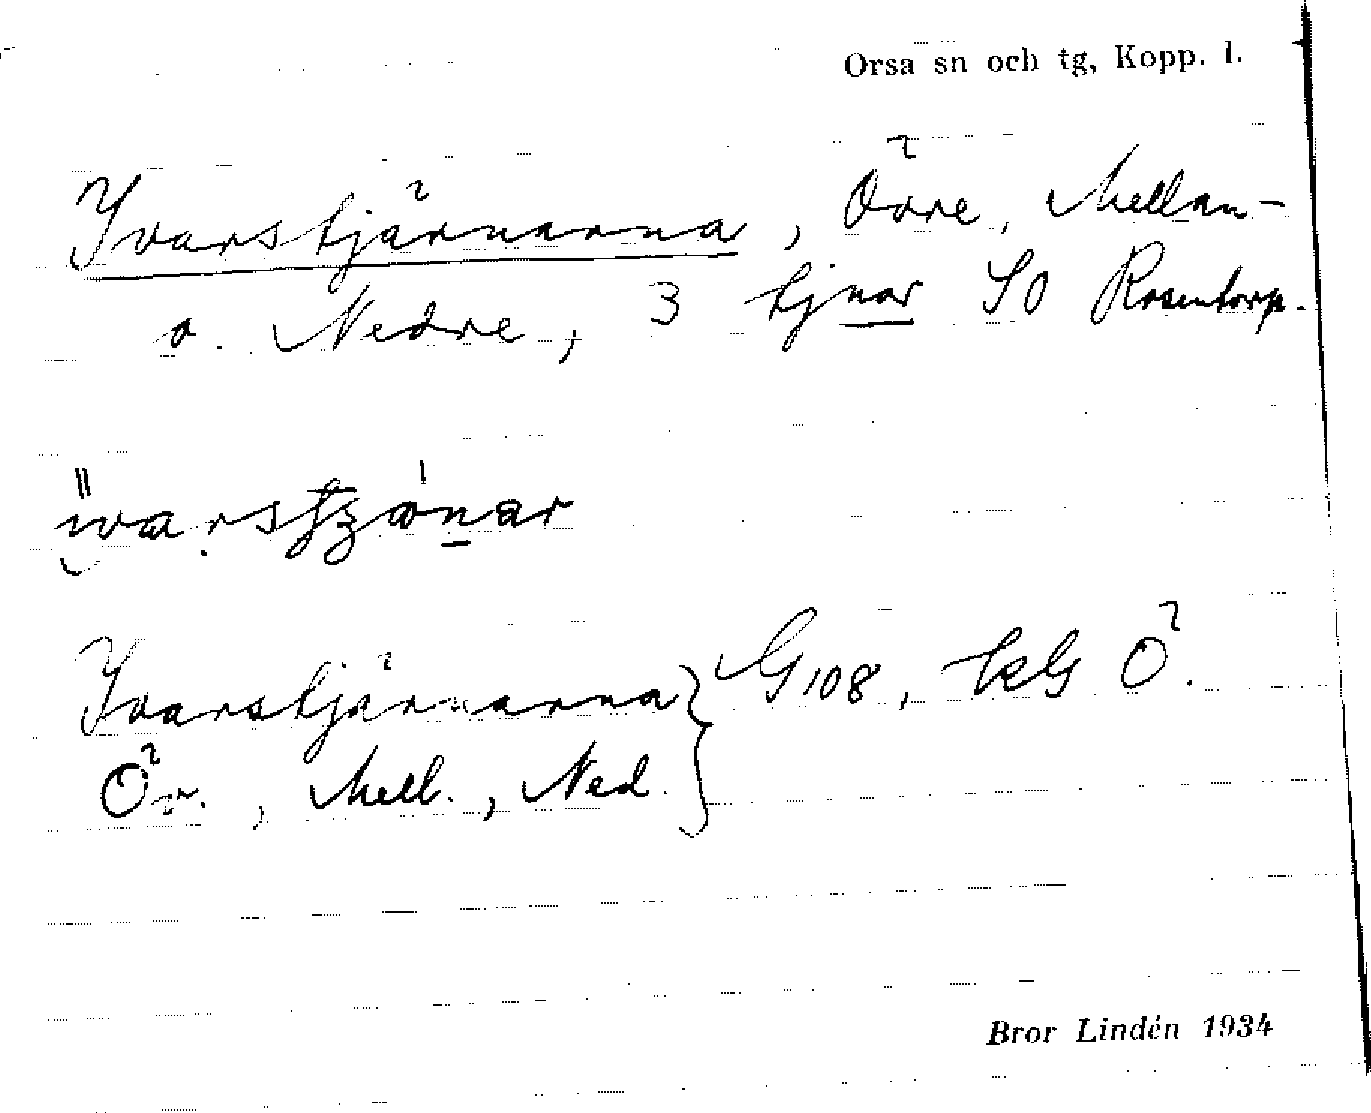 Orsa sn och tg, Kopp. l.
Ivarstjärnarna, Övre, Mellan-
o. Nedre, 3 tjnar SO Rosentorp.
Ivarstjärnarna } G108, Ö.
Öv., Mell., Ned.
Bror Lindén 1934